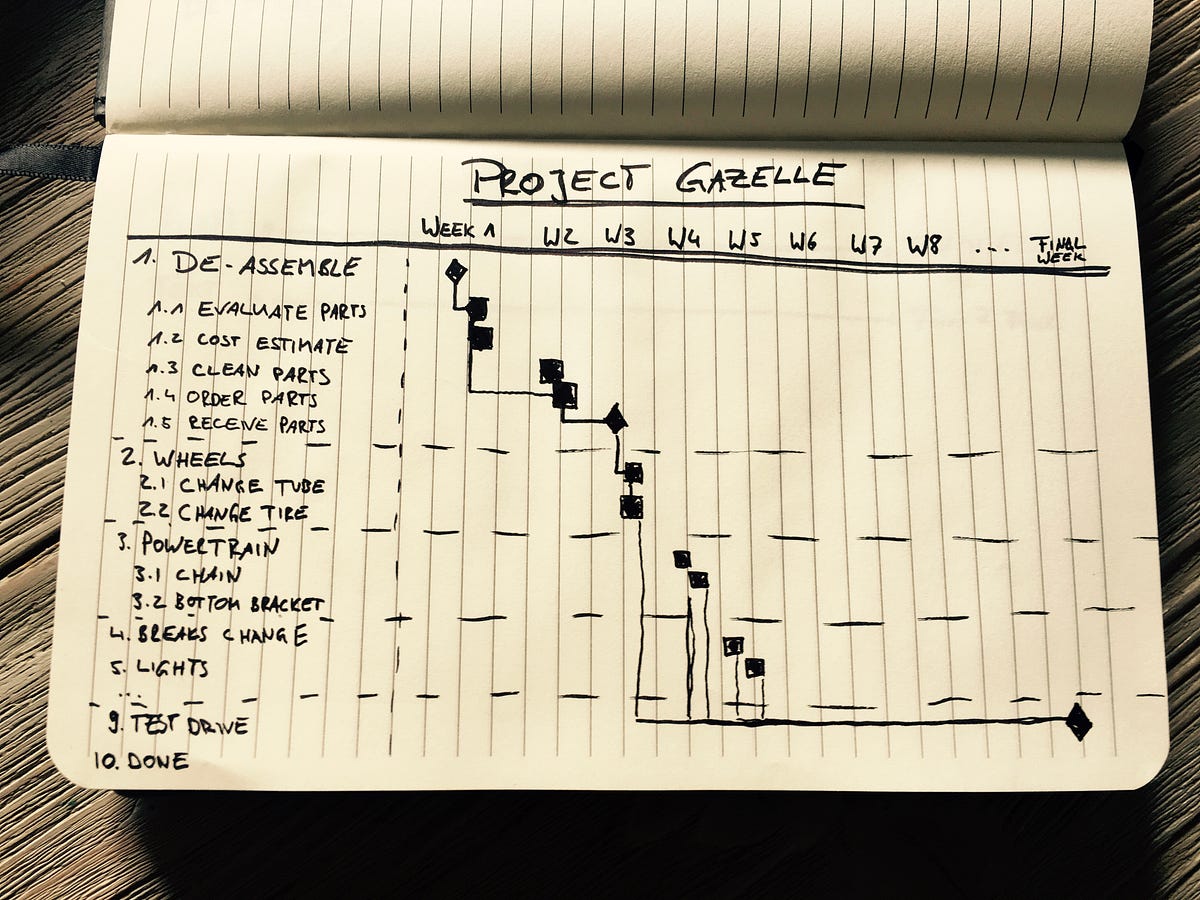 PROJECT GAZELLE
WEEK 1 W2 W3 W4 W5 W6 W7 W8 ... FINAL WEEK
1. DE-ASSEMBLE
1.1 EVALUATE PARTS
1.2 COST ESTIMATE
1.3 CLEAN PARTS
1.4 ORDER PARTS
1.5 RECEIVE PARTS
2. WHEELS
2.1 CHANGE TUBE
2.2 CHANGE TIRE
3. POWERTRAIN
3.1 CHAIN
3.2 BOTTOM BRACKET
4. BREAKS CHANGE
5. LIGHTS
...
9. TEST DRIVE
10. DONE